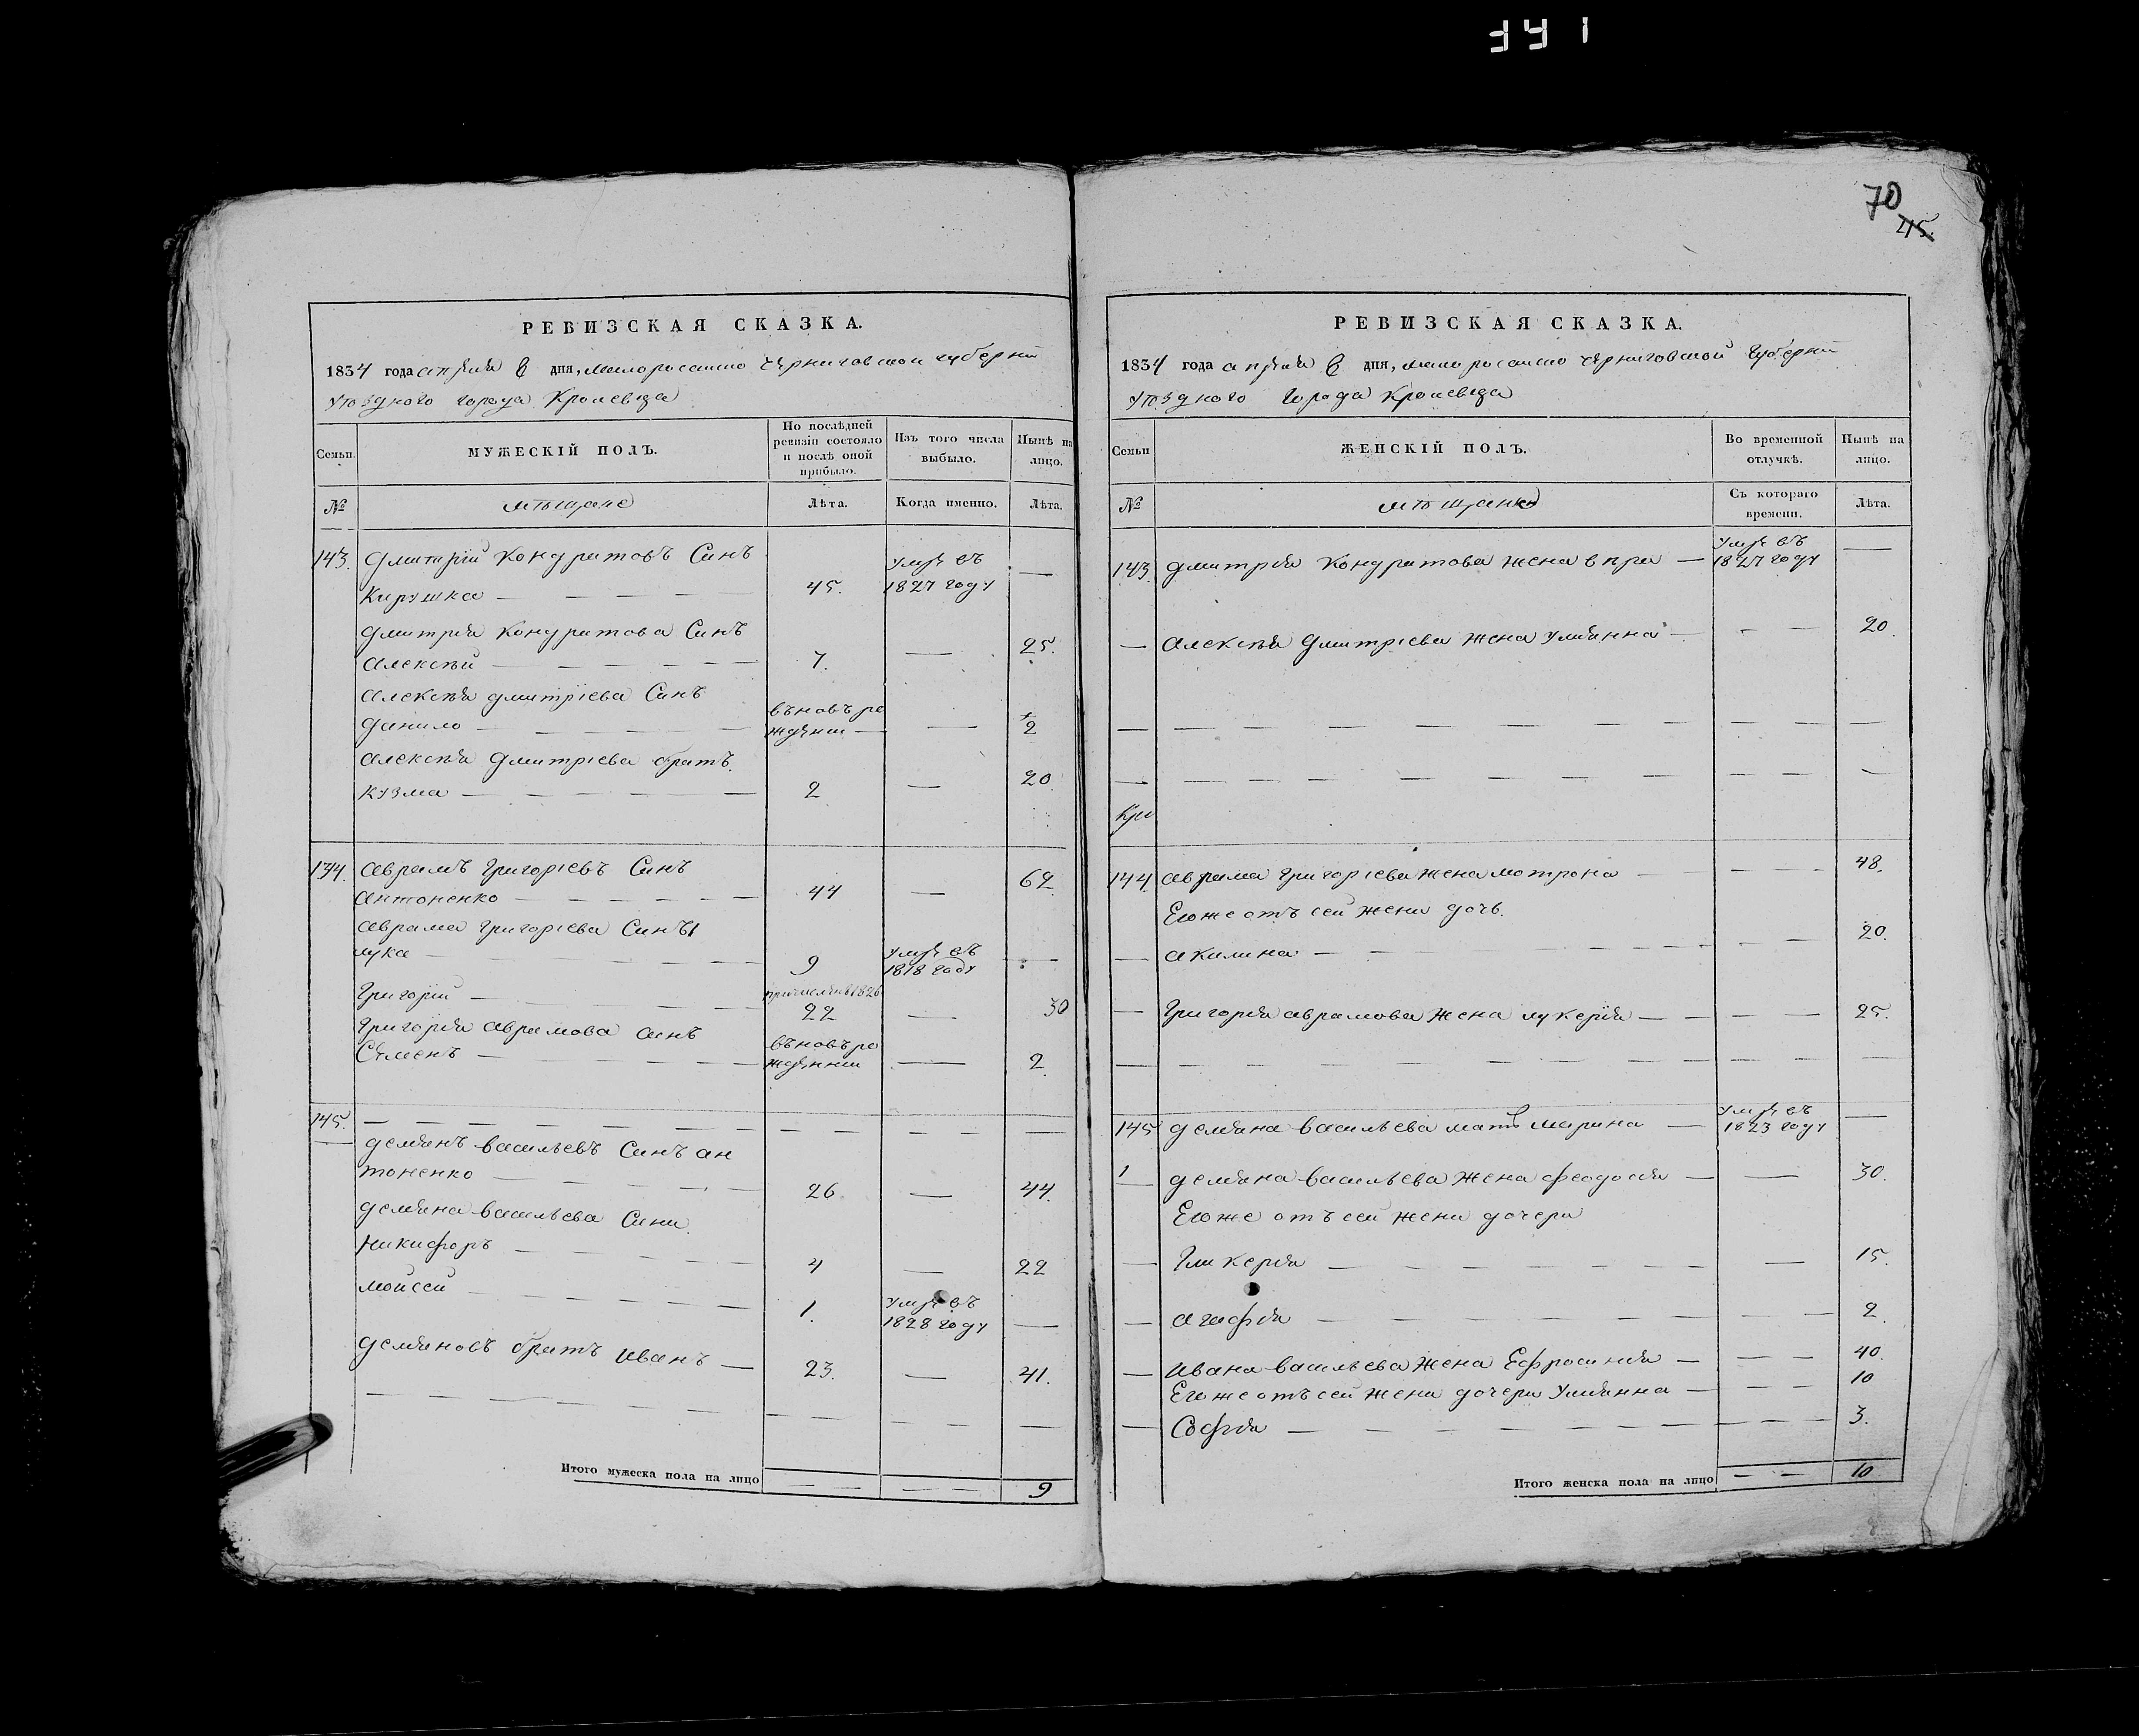 70
45.
РЕВИЗСКАЯ СКАЗКА.
1834 года апреля дня, малоросейско черниговской губернии
уѣздного города Кролевца
Семьи.
МУЖЕСКІЙ ПОЛЪ.
По послѣдней ревизіи состояло и послѣ оной прибыло.
Изъ того числа выбыло.
Нынѣ на лицо.
№
мѣщане
Лѣта.
Когда именно.
Лѣта.
143. Дмитрій Кондратовъ Синъ
Кирушка — 45. умре въ 1827 году —
Дмитрія Кондратова Синъ
Алексѣй — 7. — 25.
Алексѣя Дмитріева Синъ
Данило — въновь рожденни — — 2
Алексѣя Дмитріева братъ.
Кузма — 2 — 20.
144. Аврамъ Григоріевъ Синъ
Антоненко — 44 — 62.
Аврама Григоріева Сины
Лука — 9 умре въ 1818 году —
Григорій — 22 — 30
Григорія Аврамова Синъ
Семенъ — въновь рожденни — 2.
145. —
Демянъ Васильевъ Синъ Ан
тоненко — 26. — 44.
Демяна Васильева Сини
Никифоръ — 4 — 22
Мойсей — 1. умре въ 1828 году —
Демяновъ братъ Иванъ — 23. — 41.
Итого мужеска пола на лицо — — 9
РЕВИЗСКАЯ СКАЗКА.
1834 года апреля дня, малоросейско черниговской губернии
уѣздного города Кролевца
Семьи
ЖЕНСКІЙ ПОЛЪ.
Во временной отлучкѣ.
Нынѣ на лицо.
№
мѣщанки
Съ котораго времени.
Лѣта.
143. Дмитрія Кондратова жена — умре въ 1827 году —
— Алексѣя Дмитріева жена Улиянна — — 20.
144. Аврама Григоріева жена Мотрона — — 48.
Егоже отъ сей жени дочь.
— Акилина — — 20.
— Григорія Аврамова жена Лукерія — — 25.
145 Демяна Васильева мать Марина — умре въ 1823 году —
1 Демяна Васильева жена Феодосия — — 30.
Егоже отъ сей жени дочери
— Гликерія — — 15.
— Агафия — — 2.
— Ивана Васильева жена Ефросиния — — 40.
Егоже отъ сей жени дочери Улиянна — — 10
— София — — 3.
Итого женска пола на лицо — — 10